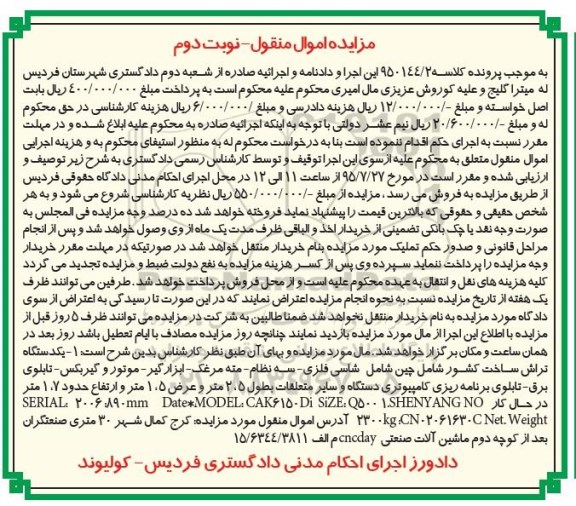 مزایده اموال منقول - نوبت دوم
به موجب پرونده کلاسه ۹۵۰۱۴۴/۲ این اجرا و دادنامه و اجرائیه صادره از شعبه دوم دادگستری شهرستان فردیس
له میترا گلیج و علیه کوروش عزیزی مال امیری محکوم علیه محکوم است به پرداخت مبلغ ۴۰۰/۰۰۰/۰۰۰ ریال بابت
اصل خواسته و مبلغ -/۱۲/۰۰۰/۰۰۰ ریال هزینه دادرسی و مبلغ -/۶/۰۰۰/۰۰۰ ریال هزینه کارشناسی در حق محکوم
له و مبلغ -/۲۰/۶۰۰/۰۰۰ ریال نیم عشر دولتی با توجه به اینکه اجرائیه صادره به محکوم علیه ابلاغ شده و در مهلت
مقرر نسبت به اجرای حکم اقدام ننموده است بنا به درخواست محکوم له به منظور استیفای محکوم به و هزینه اجرایی
اموال منقول متعلق به محکوم علیه از سوی این اجرا توقیف و توسط کارشناس رسمی دادگستری به شرح زیر توصیف و
ارزیابی شده و مقرر است در مورخ ۹۵/۷/۲۷ از ساعت ۱۱ الی ۱۲ در محل اجرای احکام مدنی دادگاه حقوقی فردیس
از طریق مزایده به فروش می رسد، مزایده از مبلغ -/۵۵۰/۰۰۰/۰۰۰ ریال نظریه کارشناسی شروع می شود و به هر
شخص حقیقی و حقوقی که بالاترین قیمت را پیشنهاد نماید فروخته خواهد شد ده درصد وجه مزایده فی المجلس به
صورت وجه نقد یا چک بانکی تضمینی از خریدار اخذ و الباقی ظرف مدت یک ماه از وی وصول خواهد شد و پس از انجام
مراحل قانونی و صدور حکم تملیک مورد مزایده بنام خریدار منتقل خواهد شد در صورتیکه در مهلت مقرر خریدار
وجه مزایده را پرداخت ننماید سپرده وی پس از کسر هزینه مزایده به نفع دولت ضبط و مزایده تجدید می گردد
کلیه هزینه های نقل و انتقال به عهده محکوم علیه است و از محل فروش پرداخت خواهد شد. طرفین می توانند ظرف
یک هفته از تاریخ مزایده نسبت به نحوه انجام مزایده اعتراض نمایند که در این صورت تا رسیدگی به اعتراض از سوی
دادگاه مورد مزایده به نام خریدار منتقل نخواهد شد ضمنا طالبین به شرکت در مزایده می توانند ظرف ۵ روز قبل از
مزایده با اطلاع این اجرا از مال مورد مزایده بازدید نمایند چنانچه روز مزایده مصادف با ایام تعطیل باشد روز بعد در
همان ساعت و مکان برگزار خواهد شد. مال مورد مزایده و بهای آن طبق نظر کارشناس بدین شرح است: ۱-یکدستگاه
تراش ساخت کشور شامل چین شامل شاسی فلزی - سه نظام - مته مرغک - ابزارگیر - موتور و گیربکس - تابلوی
برق - تابلوی برنامه ریزی کامپیوتری دستگاه و سایر متعلقات بطول ۲،۵ متر و عرض ۱،۵ متر و ارتفاع حدود ۱،۷ متر
در حال کار SERIAL: ۲۰۰۶،۸۹۰mm Date*MODEL: CAK۶۱۵۰Di SiZE: Q۵۰۰۱،SHENYANG NO
۲۳۰۰kg ،CN۰۲۰۶۱۶۳۰C Net. Weight آدرس اموال منقول مورد مزایده: کرج کمال شهر ۳۰ متری صنعتگران
بعد از کوچه دوم ماشین آلات صنعتی cncday م الف ۱۵/۶۳۴۴/۳۸۱۱
دادورز اجرای احکام مدنی دادگستری فردیس - کولیوند